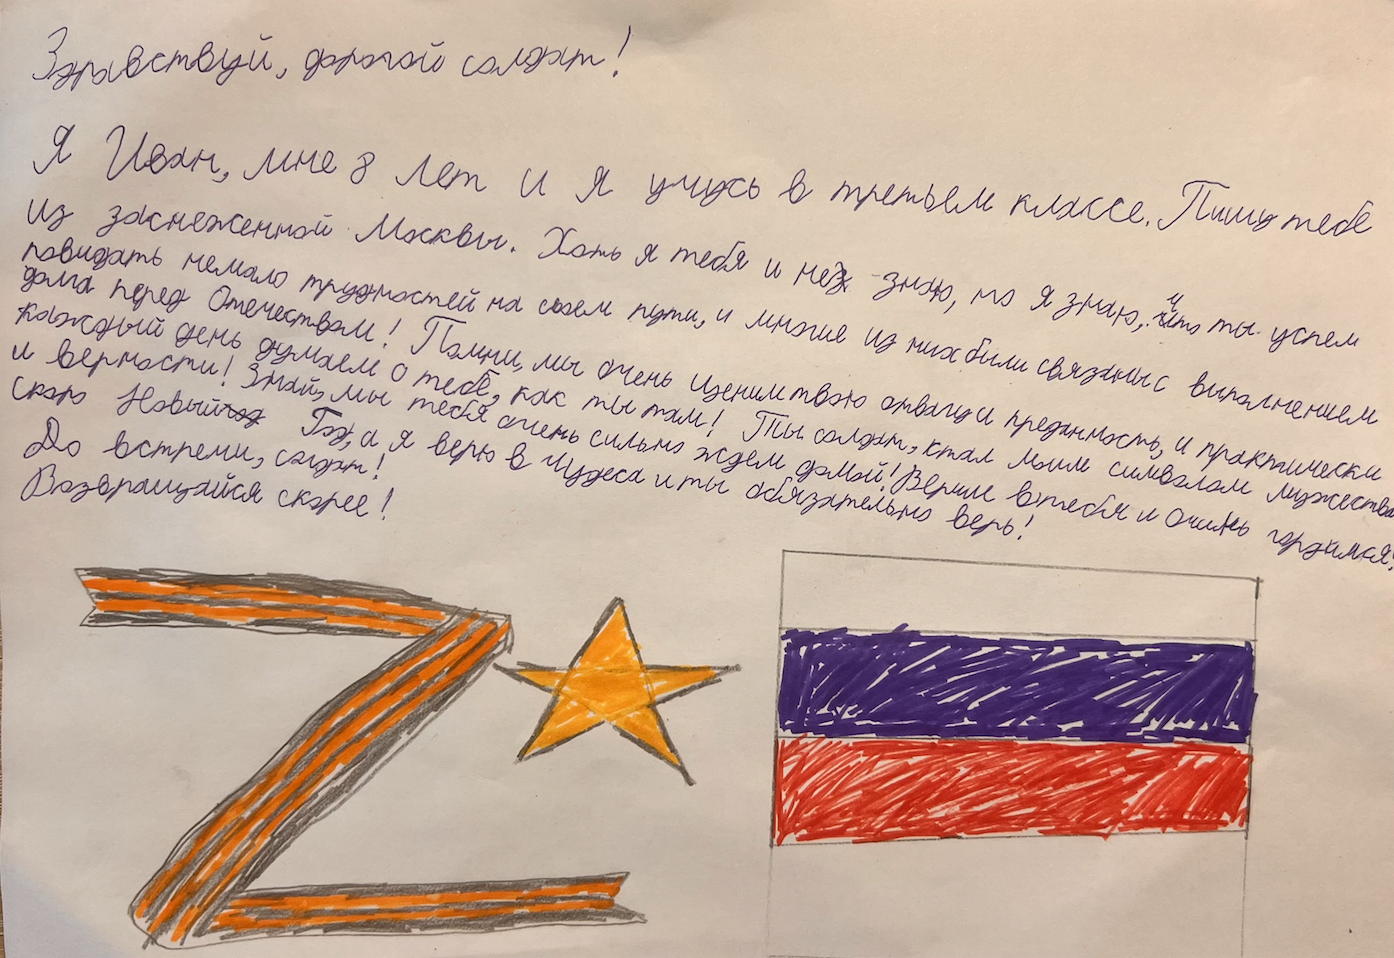 Здравствуй, дорогой солдат!
Я Иван, мне 8 лет и я учусь в третьем классе. Пишу тебе
из заснеженной Москвы. Хоть я тебя и не знаю, но я знаю, что ты успем
повидать немало трудностей на своем пути, и многие из них были связаны с выполнением
долга перед Отечеством! Помни, мы очень ценим твою отвагу и преданность, и практически
каждый день думаем о тебе, как ты там! Ты солдат, стал моим символом мужества
и верности! Знай, мы тебя очень сильно ждем домой! Верим в тебя и очинь гордимся!
скоро Новый Год, а я верю в чудеса и ты обязательно верь!
До встречи, солдат!
Возвращайся скорее!
Z